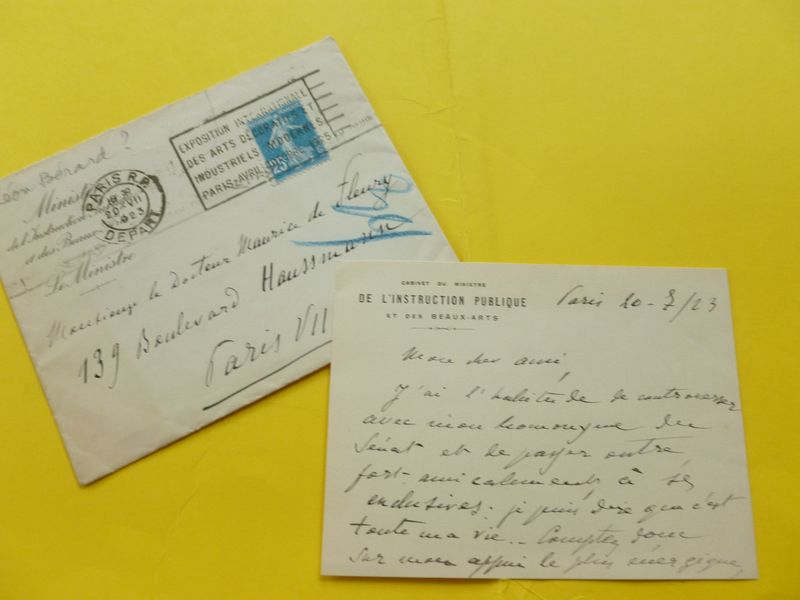 Léon Bérard ?
Ministère
de l'Instruction
et des Beaux
Le Ministre
PARIS R.P.
20 - VII
923
DEPART
EXPOSITION INTERNATIONALE
DES ARTS DECORATIFS ET
INDUSTRIELS MODERNES
PARIS-AVRIL
25c
Monsieur le Docteur Maurice de Fleury
139 Boulevard Haussmann
Paris VII
CABINET DU MINISTRE
DE L'INSTRUCTION PUBLIQUE
ET DES BEAUX-ARTS
Paris 20 - 7/23
Mon cher ami,
J'ai l'habitude de controverser
avec mon homonyme du
Sénat et de passer outre
fort amicalement à ses
exclusives. je puis dire que c'est
toute ma vie. _ Comptez donc
sur mon appui le plus énergique,